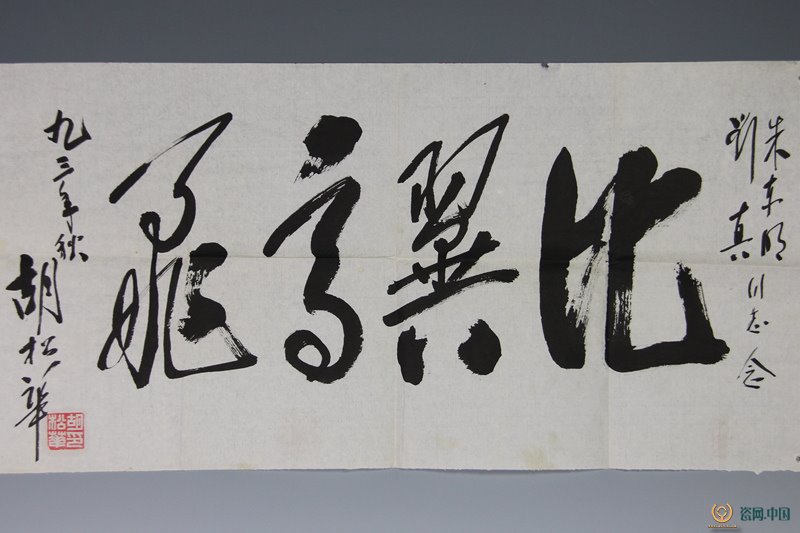 朱东明
刘真 川志念
比翼高飞
九三年秋
胡松华
胡松华印
瓷网.中国